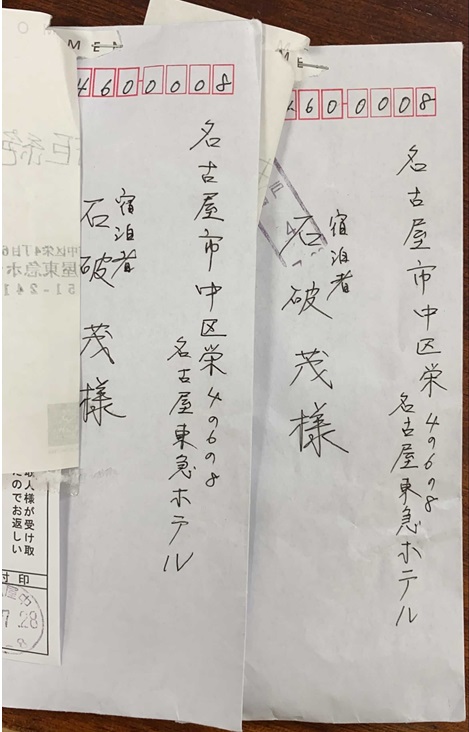 MEN
4600008
名古屋市中区栄4の6の8
名古屋東急ホテル
宿泊者
石破茂様
取人様が受け取
たのでお返しい
付印
7.28
ME
4600008
名古屋市中区栄4の6の8
名古屋東急ホテル
宿泊者
石破茂様